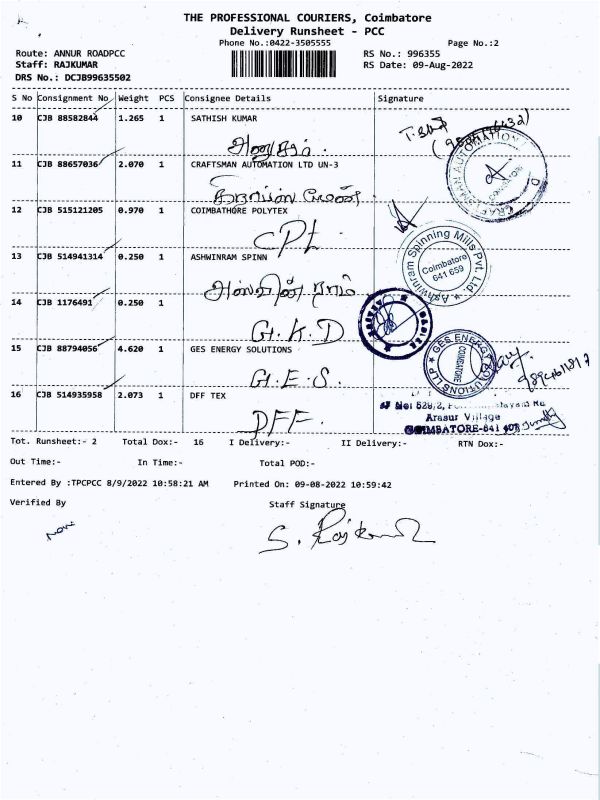 THE PROFESSIONAL COURIERS, Coimbatore
Delivery Runsheet - PCC
Phone No.:0422-3505555
Page No.:2
Route: ANNUR ROADPCC
RS No.: 996355
Staff: RAJKUMAR
RS Date: 09-Aug-2022
DRS No.: DCJB99635502
S No Consignment No Weight PCS Consignee Details Signature
10 CJB 88582844 1.265 1 SATHISH KUMAR
11 CJB 88657036 2.070 1 CRAFTSMAN AUTOMATION LTD UN-3
CRAFTSMAN AUTOMATION
12 CJB 515121205 0.970 1 COIMBATHORE POLYTEX
CPL
13 CJB 514941314 0.250 1 ASHWINRAM SPINN
Ashwinram Spinning Mills Pvt. Ltd
Coimbatore
641 659
14 CJB 1176491 0.250 1
G.K.D
15 CJB 88794056 4.620 1 GES ENERGY SOLUTIONS
G.E.S.
GES ENERGY SOLUTIONS LLP
COIMBATORE
16 CJB 514935958 2.073 1 DFF TEX
DFF.
Arasur Village
COIMBATORE-641 407
Tot. Runsheet:- 2 Total Dox:- 16 I Delivery:- II Delivery:- RTN Dox:-
Out Time:- In Time:- Total POD:-
Entered By :TPCPCC 8/9/2022 10:58:21 AM Printed On: 09-08-2022 10:59:42
Verified By Staff Signature
S. Rajkumar